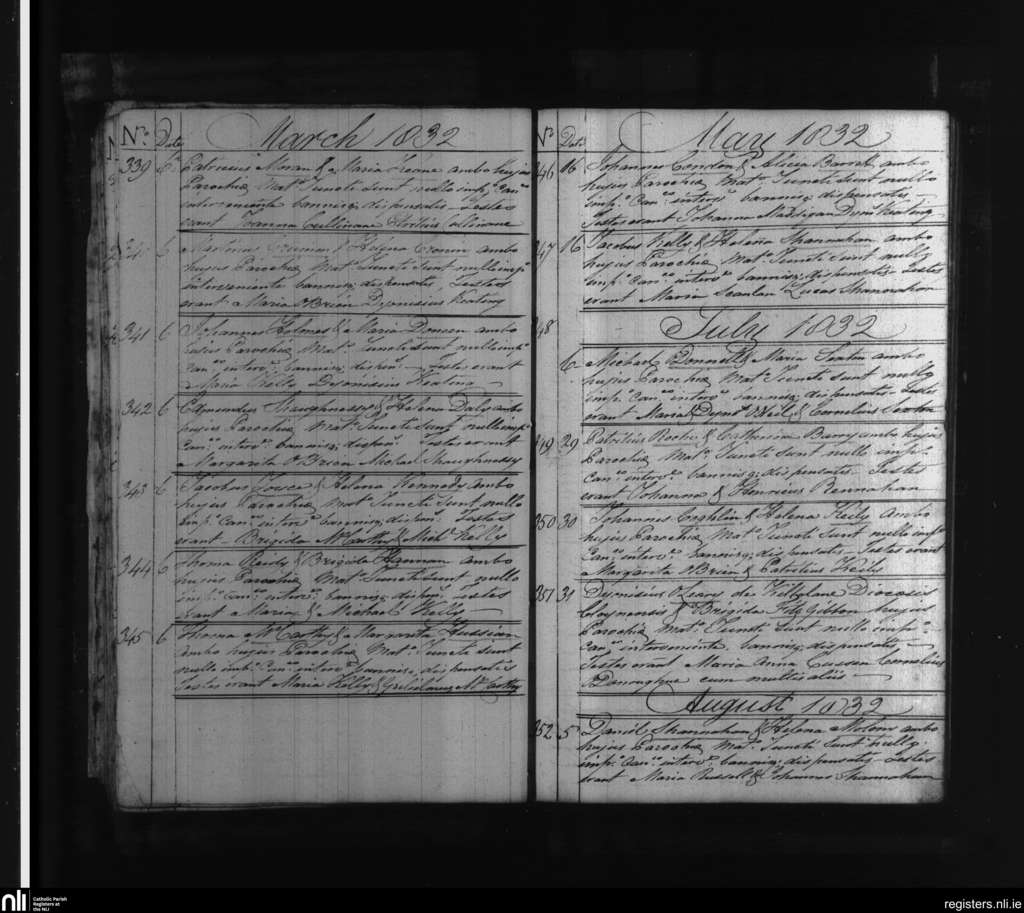 No. Date March 1832
339 6 Patricius Moran & Maria Keane ambo hujus
Parochiæ Mat. Juncti sunt nullo imp. Can.
interveniente bannisq; dispensatis Testes
erant Joanna Cullinane Cullinane
6 Martinus & Helena Cronin ambo
hujus Parochiæ Mat. Juncti sunt nullo imp.
interveniente bannisq; dispensatis, Testes
erant Maria O'Brien Dyonisius Keating
341 6 Johannes Holmes & Maria ambo
hujus Parochiæ Mat. Juncti sunt nullo imp.
Can. interv. bannisq; dispen. Testes erant
Maria Dyonisius Keating
342 6 Edmundus Shaughnessy & Helena Daly ambo
hujus Parochiæ Mat. Juncti sunt nullo imp.
Can. interv. bannisq; dispen. Testes erant
Margarita O'Brien Michael Shaughnessy
343 6 Jacobus & Helena Kennedy ambo
hujus Parochiæ Mat. Juncti sunt nullo
imp. Can. interv. bannisq; dispen. Testes
erant Brigida McCarthy & Mich. Kelly
344 6 Thoma Reidy & Brigida ambo
hujus Parochiæ Mat. Juncti sunt nullo
imp. Can. interv. bannisq; dispen. Testes
erant Maria & Michael Kelly
345 6 Thoma McCarthy & Margarita Hussian
ambo hujus Parochiæ Mat. Juncti sunt
nullo imp. Can. interv. bannisq; dispensatis
Testes erant Maria Kelly & McCarthy
No. Date May 1832
346 16 Johannes Condon & Alicia Barrett ambo
hujus Parochiæ Mat. Juncti sunt nullo
imp. Can. interv. bannisq; dispensatis
Testes erant Johanna Madigan Dyon. Keating
347 16 Jacobus Kelly & Helena Shannahan ambo
hujus Parochiæ Mat. Juncti sunt nullo
imp. Can. interv. bannisq; dispensatis Testes
erant Maria Scanlan Lucas Shannahan
348 July 1832
6 Michael ODonnell & Maria Sexton ambo
hujus Parochiæ Mat. Juncti sunt nullo
imp. Can. interv. bannisq; dispensatis Testes
erant Maria & Dyon. ONeil & Cornelius Sexton
349 29 Patritius Roche & Catherina Barry ambo hujus
Parochiæ Mat. Juncti sunt nullo imp.
Can. interv. bannisq; dispensatis Testes
erant Johanna & Henricus
350 30 Johannes Coghlin & Helena ambo
hujus Parochiæ Mat. Juncti sunt nullo imp.
Can. interv. bannisq; dispensatis Testes erant
Margarita O'Brien & Patritius
351 31 Dyonisius OLeary de Kilbylane Diocesis
Cloynensis & Brigida FitzGibbon hujus
Parochiæ Mat. Juncti sunt nullo imp.
Can. interveniente bannisq; dispensatis
Testes erant Maria Anna Cussen Cornelius
ODonoughue cum multis aliis
August 1832
352 5 Daniel Shannahan & Helena Molony ambo
hujus Parochiæ Mat. Juncti sunt nullo
imp. Can. interv. bannisq; dispensatis Testes
erant Maria Russell & Johannes Shannahan
nli Catholic Parish
Registers at
the NLI
registers.nli.ie